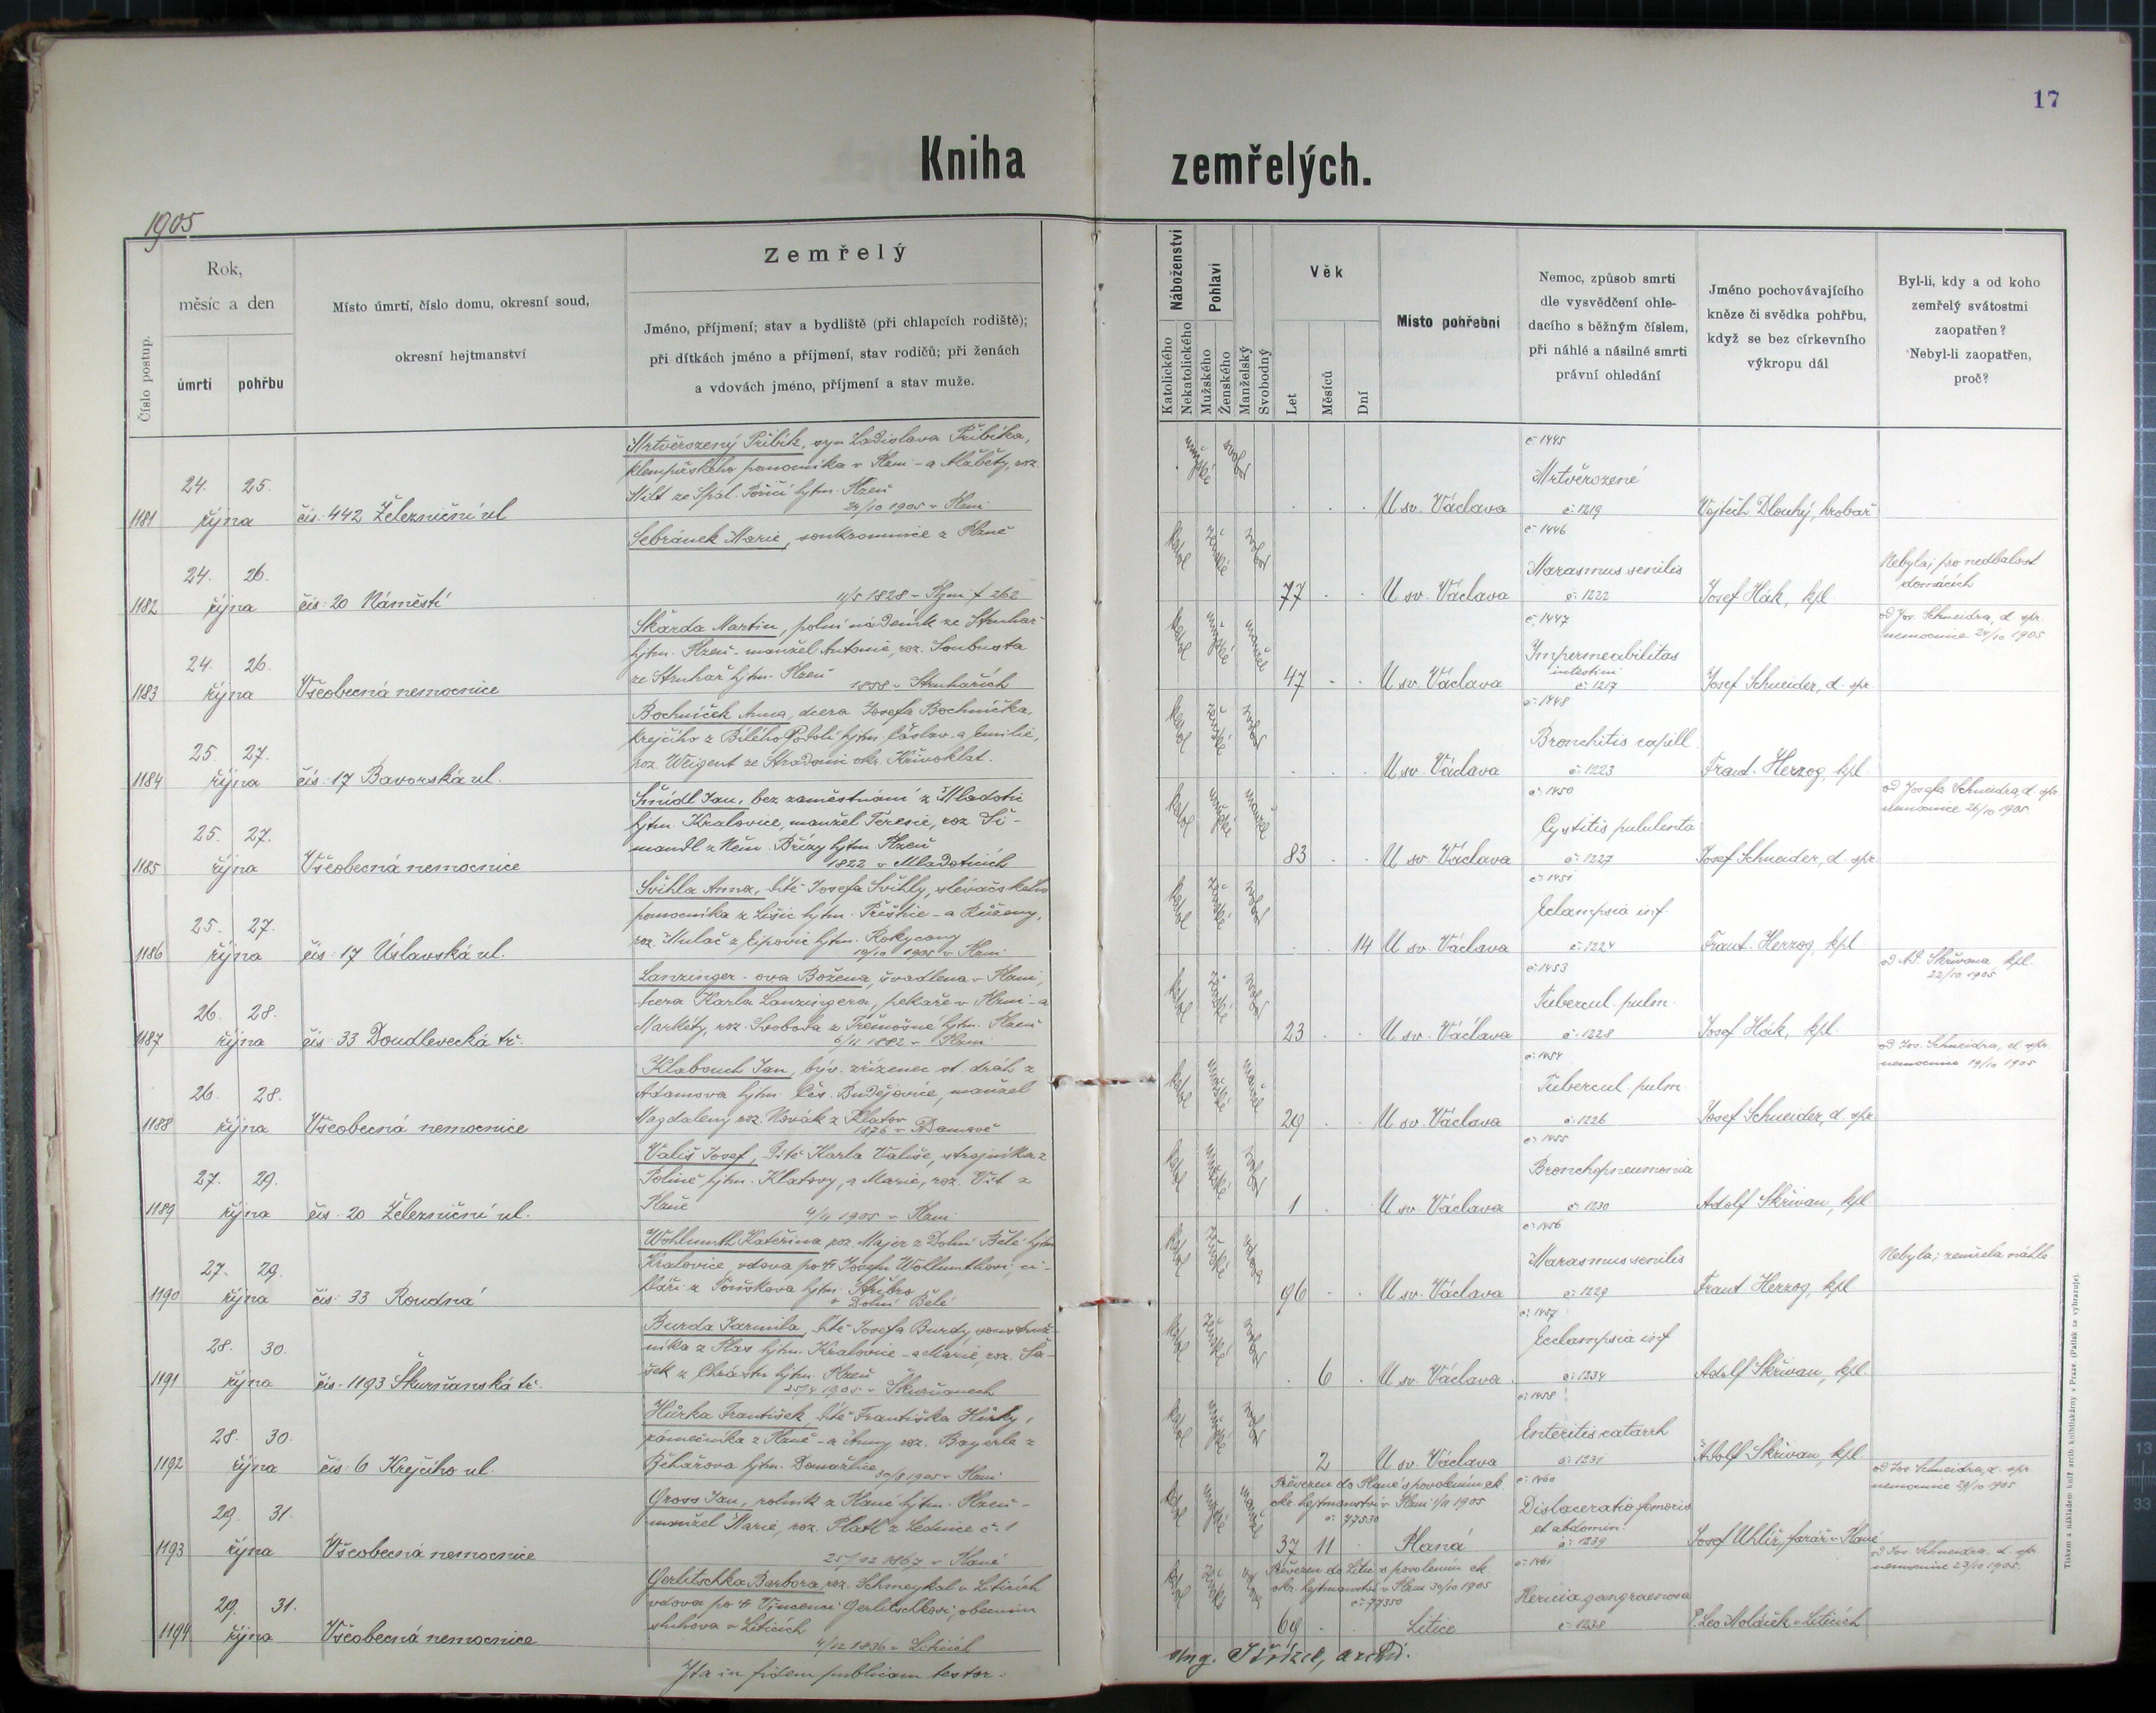 17
Kniha zemřelých.
1905
Číslo postup.
Rok,
měsíc a den
úmrtí
pohřbu
Místo úmrtí, číslo domu, okresní soud,
okresní hejtmanství
Zemřelý
Jméno, příjmení; stav a bydliště (při chlapcích rodiště);
při dítkách jméno a příjmení, stav rodičů; při ženách
a vdovách jméno, příjmení a stav muže.
Náboženství
Katolického
Nekatolického
Pohlaví
Mužského
Ženského
Manželský
Svobodný
Věk
Let
Měsíců
Dní
Místo pohřební
Nemoc, způsob smrti
dle vysvědčení ohle-
dacího s běžným číslem,
při náhlé a násilné smrti
právní ohledání
Jméno pochovávajícího
kněze či svědka pohřbu,
když se bez církevního
výkropu dál
Byl-li, kdy a od koho
zemřelý svátostmi
zaopatřen?
Nebyl-li zaopatřen,
proč?
1181 24. 25. října čís. 442 Železniční ul
Mrtvěrozený Přibík, syn Ladislava Přibíka,
klempířského pomocníka v Plzni - a Alžběty, roz.
Milt ze Spál. Poříčí hjtm. Plzeň
24/10 1905 v Plzni
mužské svob
U sv. Václava
č. 1445
Mrtvěrozené
č. 1219
Vojtěch Dlouhý, hrobař
1182 24. 26. října čís. 20 Náměstí
Sebránek Marie, soukromnice z Plzně
11/5 1828 - Plzni f 262
katol ženské svob
77 U sv. Václava
č. 1446
Marasmus senilis
č. 1222
Josef Hák, kpl.
Nebyla; pro nedbalost
domácích
1183 24. 26. října Všeobecná nemocnice
Škarda Martin, polní nádeník ze Struhař
hjtm. Plzeň - manžel Antonie, roz. Soubusta
ze Struhař hjtm. Plzeň
1858 v Struhařích
katol mužské manžel
47 U sv. Václava
č. 1447
Impermeabilitas
intestini
č. 1217
Josef Schneider, d. spr.
od Jos. Schneidra, d. spr.
nemocnice 24/10 1905
1184 25. 27. října čís. 17 Bavorská ul.
Bochníček Anna, dcera Josefa Bochníčka,
krejčího z Bílého Podolí hjtm. Čáslav - a Emilie,
roz. Weigent ze Stradoni okr. Křivoklat.
katol ženské svob
U sv. Václava
č. 1448
Bronchitis capill.
č. 1223
Frant. Herzog, kpl.
1185 25. 27. října Všeobecná nemocnice
Šmídl Jan, bez zaměstnání z Mladotic
hjtm. Kralovice, manžel Teresie, roz Ši-
mandl z Něm. Břízy hjtm. Plzeň
1822 v Mladoticích
katol mužské manžel
83 U sv. Václava
č. 1450
Cystitis pululenta
č. 1227
Josef Schneider, d. spr.
od Josefa Schneidra, d. spr.
nemocnice 26/10 1905.
1186 25. 27. října čís. 17 Úslavská ul.
Švihla Anna, dítě Josefa Švihly, slévačského
pomocníka z Lišic hjtm. Přeštice - a Růženy,
roz. Mulač z Ejpovic hjtm. Rokycany
10/10 1905 v Plzni
katol ženské svob
14 U sv. Václava
č. 1451
Eclampsia inf.
č. 1224
Frant. Herzog, kpl.
1187 26. 28. října čís. 33 Doudlevecká tř.
Lanzinger-ova Božena, švadlena v Plzni,
dcera Karla Lanzingera, pekaře v Plzni - a
Markéty, roz. Svoboda z Třemošné hjtm. Plzeň
6/11 1882 v Plzni
katol ženské svob
23 U sv. Václava
č. 1453
Tubercul. pulm.
č. 1228
Josef Hák, kpl.
od Ad. Skřivana kpl.
22/10 1905
1188 26. 28. října Všeobecná nemocnice
Klabouch Jan, býv. zřízenec st. dráh z
Adamova hjtm. Čes. Budějovice, manžel
Magdaleny roz. Novák z Klatov
1876 v Adamově
katol mužské manžel
29 U sv. Václava
č. 1454
Tubercul. pulm
č. 1226
Josef Schneider, d. spr.
od Jos. Schneidra, d. spr.
nemocnice 19/10 1905
1189 27. 29. října čís. 20 Železniční ul.
Vališ Josef, dítě Karla Vališe, strojníka z
Polině hjtm. Klatovy, a Marie, roz. Vít z
Plzně
4/11 1905 v Plzni
katol mužské svob
1 U sv. Václava
č. 1455
Bronchopneumonia
č. 1230
Adolf Skřivan, kpl.
1190 27. 29. října čís. 33 Roudná
Wohlmuth Kateřina roz. Majer z Dolní Bělé hjtm
Kralovice, vdova po † Josefu Wohlmuthovi,
Stříbro
v Dolní Bělé
katol ženské vdova
96 U sv. Václava
č. 1456
Marasmus senilis
č. 1229
Frant Herzog, kpl.
Nebyla; zemřela náhle
1191 28. 30. října čís. 1193 Skurňanská tř.
Burda Jarmila, dítě Josefa Burdy, soustruž-
níka z Plas hjtm. Kralovice - a Marie, roz. Ša-
šek z Chrástu hjtm. Plzeň
25/4 1905 v Skurňanech
katol ženské svob
6 U sv. Václava
č. 1457
Ecclampsia inf
č. 1234
Adolf Skřivan, kpl.
1192 28. 30. října čís. 6 Krejčího ul.
Hůrka František, dítě Františka Hůrky,
zámečníka z Plzně - a Anny roz. Bayerle z
Běhařova hjtm. Domažlice
30/8 1905 v Plzni
katol mužské svob
2 U sv. Václava
č. 1458
Enteritis catarrh
č. 1231
Adolf Skřivan, kpl.
1193 29. 31. října Všeobecná nemocnice
Gross Jan, rolník z Plané hjtm. Plzeň -
manžel Marie, roz. Platl z Lednice č. 1
25/12 1867 v Plané
katol mužské manžel
Převezen do Plané s povolením ck.
okr. hejtmanství v Plzni 1/11 1905
č. 77530
37 11 Planá
č. 1460
Dislaceratio femoris
et abdomin.
č. 1239
Josef Uhlíř, farář v Plané
od Jos. Schneidra, d. spr
nemocnice 29/10 1905
1194 29. 31. října Všeobecná nemocnice
Gerlitschka Barbora, roz. Schmeykal v Liticích
vdova po † Vincenci Gerlitschkovi, obecním
sluhovi v Liticích
4/12 1836 v Liticích
katol ženské vdova
Převezen do Litic s povolením ck.
okr. hejtmanství v Plzni 30/10 1905
č. 77350
69 Litice
č. 1461
Hernia gangraenosa
č. 1238
P. Leo Holáček v Liticích
od Jos. Schneidra, d. spr.
nemocnice 23/10 1905.
Ita in fidem publicam testor:
Aug. Střízl, archid.
Tiskem a nákladem kníž. arcib. knihtiskárny v Praze. (Patisk se vyhrazuje).